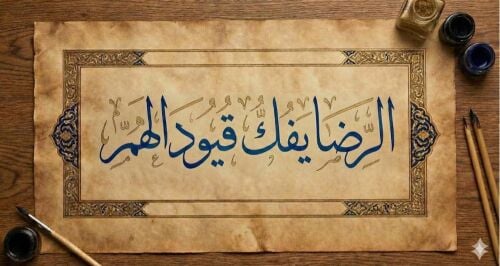 الرِّضا يفكُّ قيودَ الهمِّ